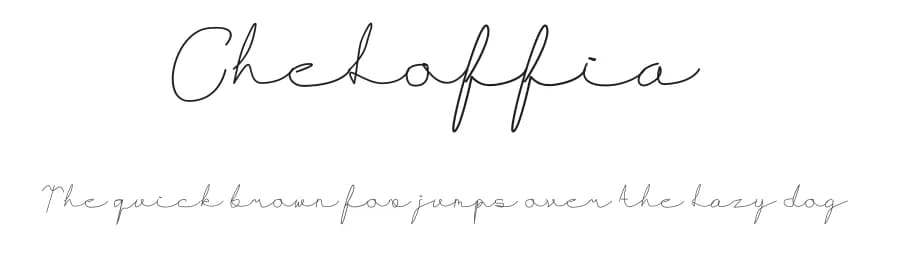 Cheloffia
The quick brown fox jumps over the lazy dog